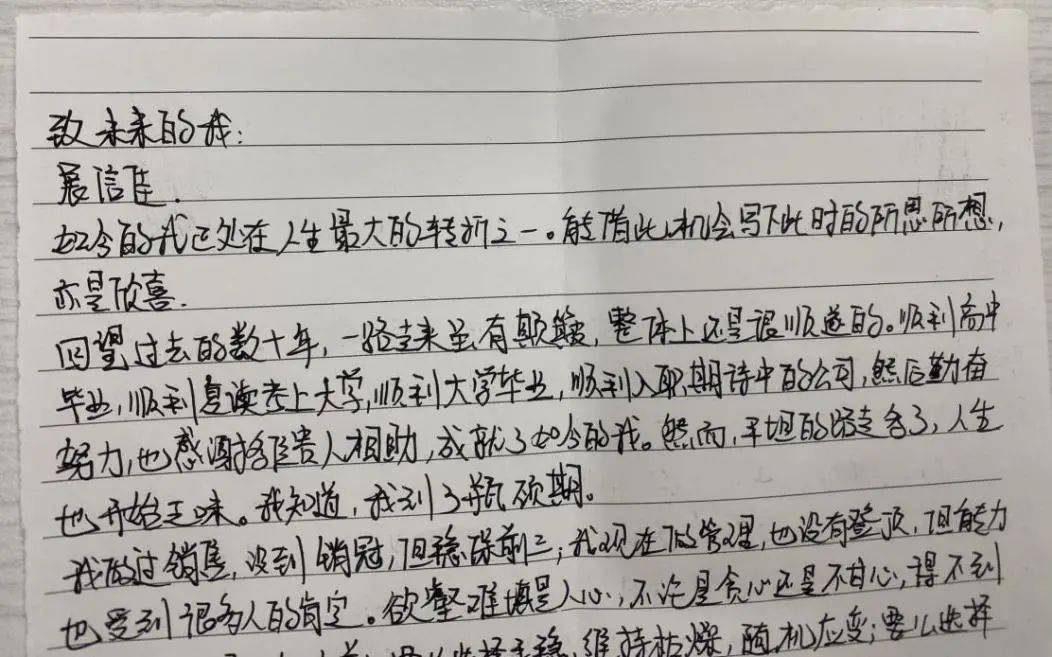 致未来的我：
展信佳.
如今的我正处在人生最大的转折之一。能借此机会写下此时的所思所想，
亦是欣喜.
回望过去的数十年，一路走来虽有颠簸，整体上还是很顺遂的。顺利高中
毕业，顺利复读考上大学，顺利大学毕业，顺利入职期待中的公司，然后勤奋
努力，也感谢各位贵人相助，成就了如今的我。然而，平坦的路走多了，人生
也开始乏味。我知道，我到了瓶颈期。
我做过销售，没到销冠，但稳保前三；我现在做管理，也没有登顶，但能力
也受到很多人的肯定。欲壑难填是人心，不论是贪心还是不甘心，得不到
选择平稳，维持枯燥，随机应变；要么选择